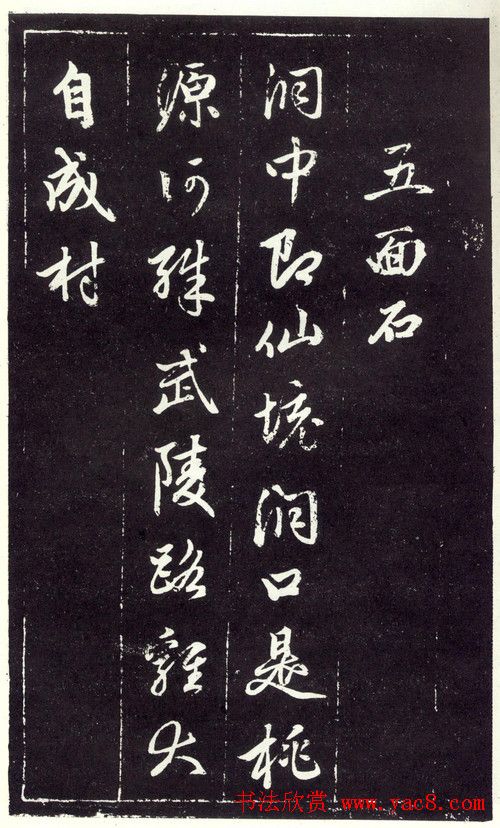 五面石
洞中即仙境洞口是桃
源何殊武陵路雞犬
自成村
书法欣赏 www.yac8.com